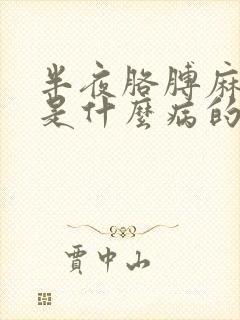 半夜胳膊麻
是什麼病的
賈中山